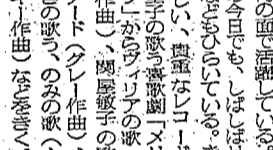 の面で活躍している。
今日でも、しばしば
どもひらいている。き
しい、貴重なレコード
子の歌う喜歌劇「メリ
」からヴィリアの歌
作曲）、関屋敏子の
ード（グレー作曲）、
の歌う、のみの歌（
作曲）などをきく